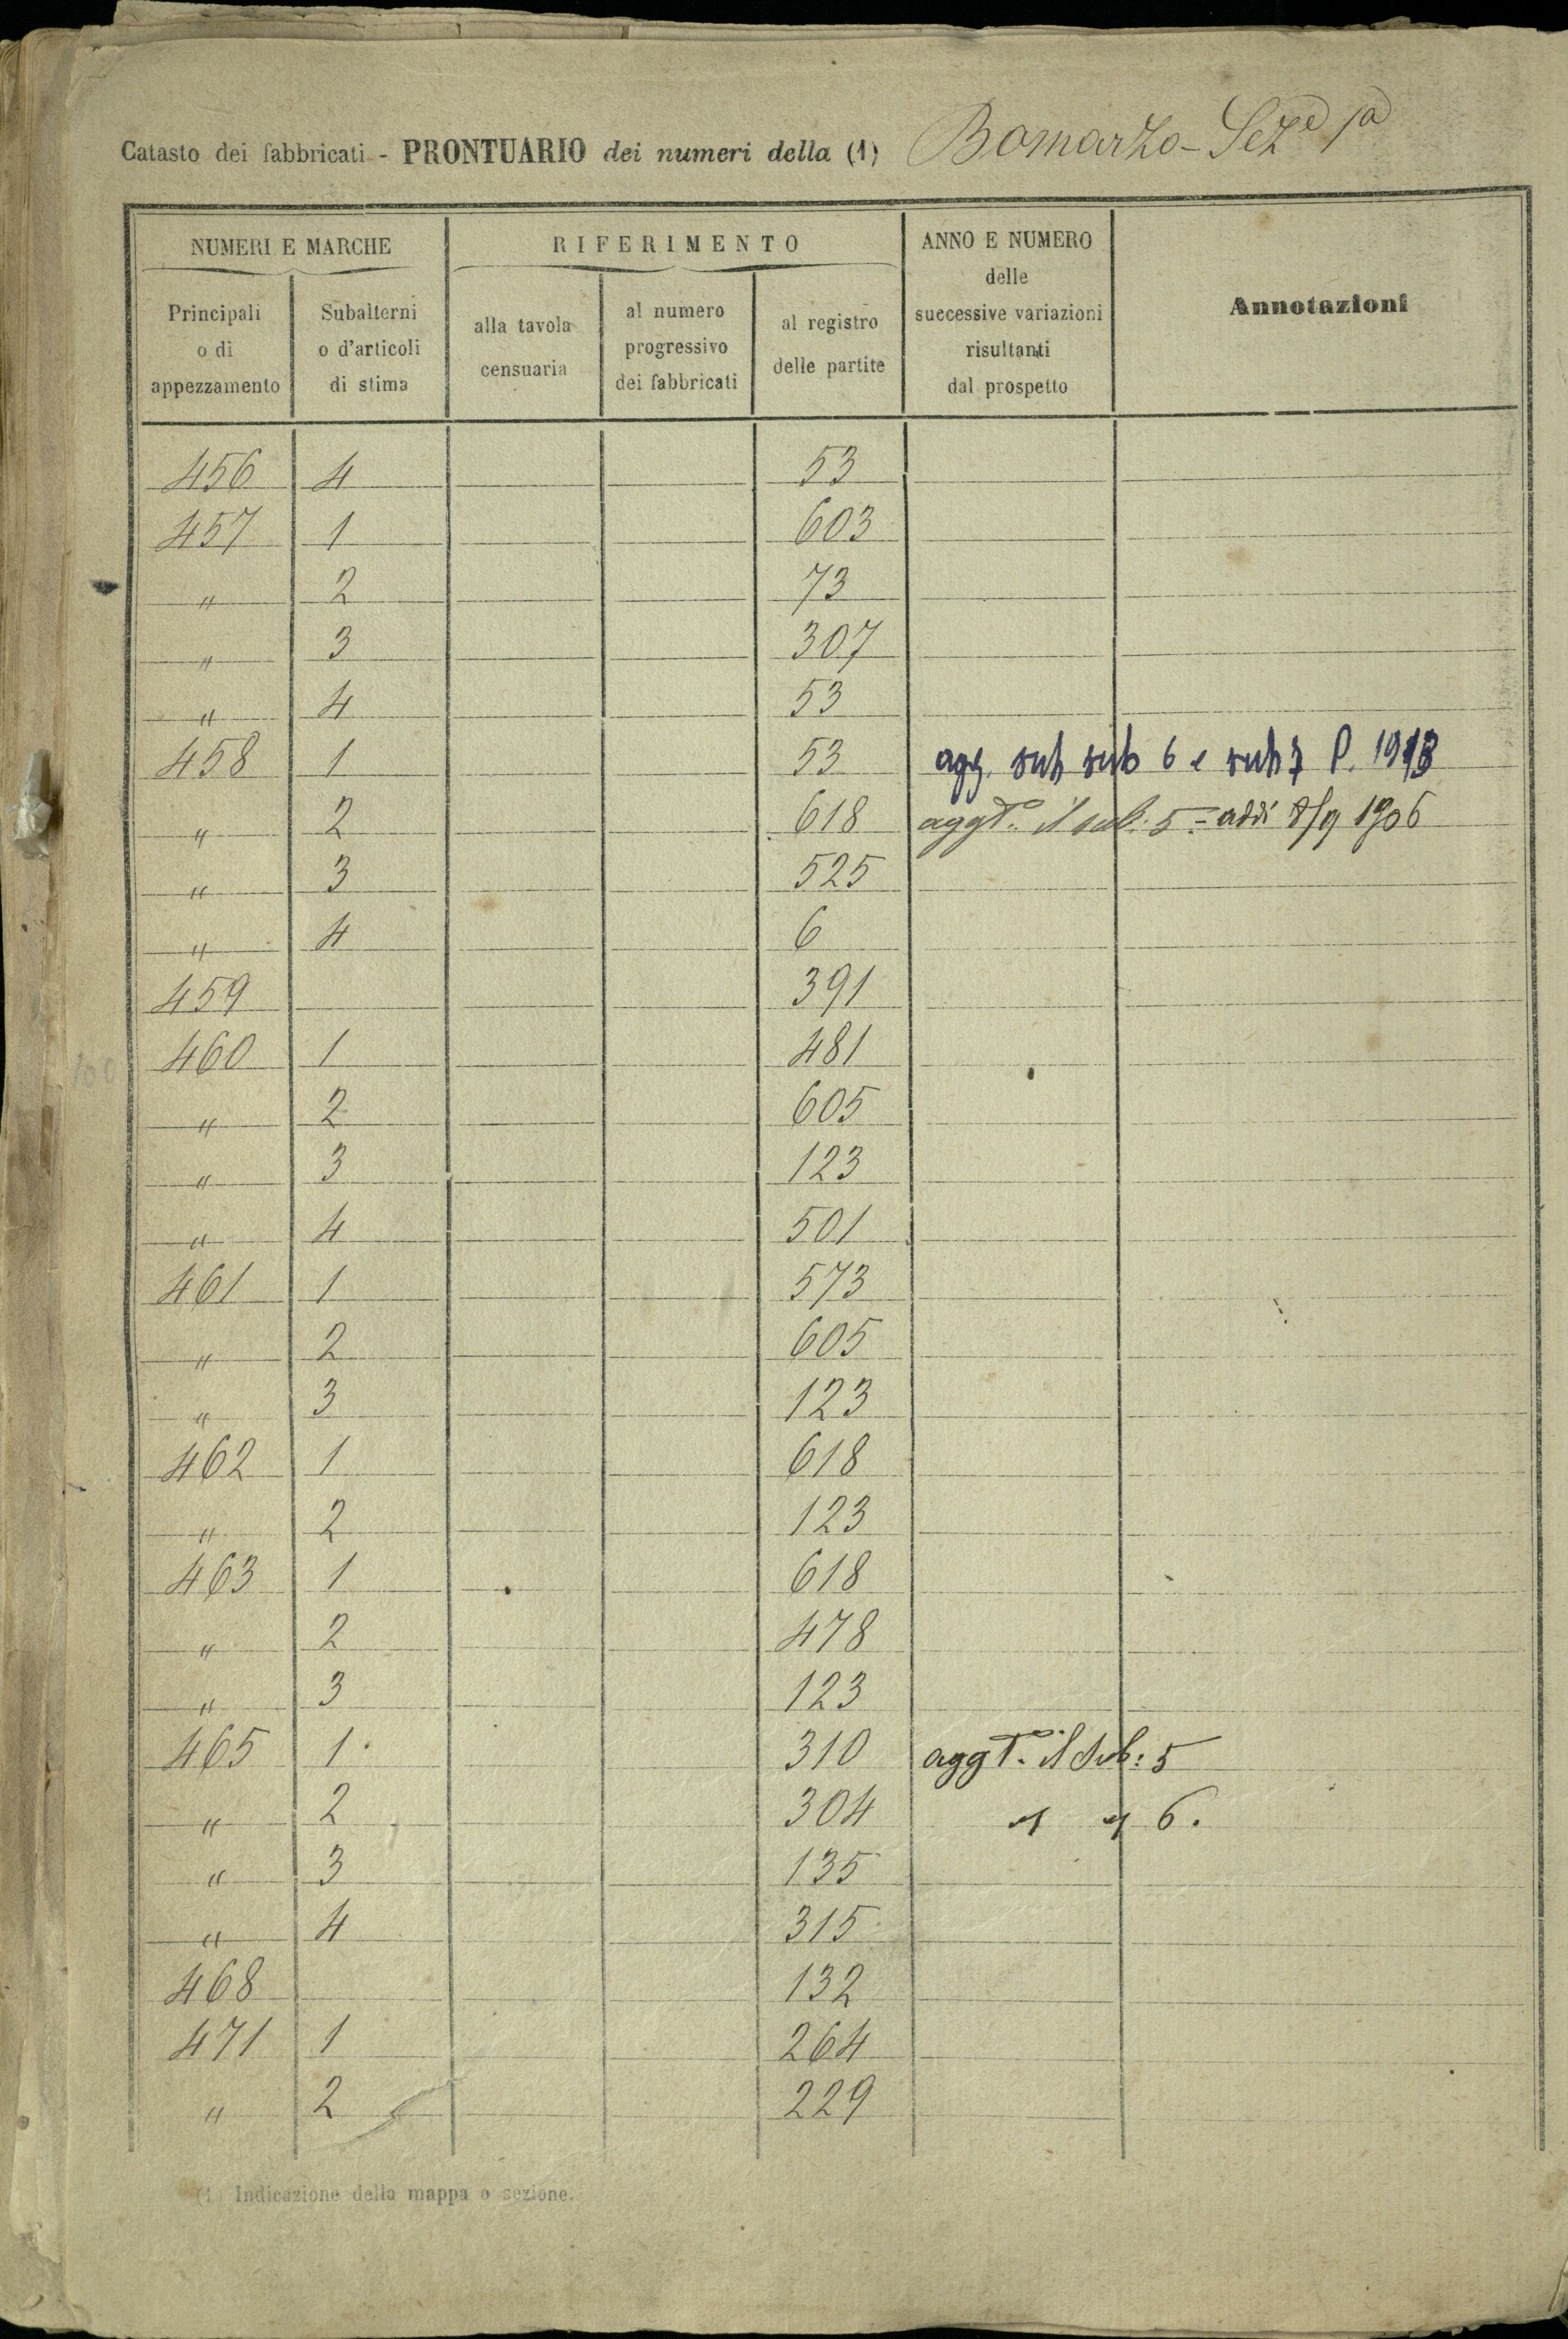 Catasto dei fabbricati - PRONTUARIO dei numeri della (1) Bomarzo - Sez.e 1a
NUMERI E MARCHE
Principali o di appezzamento
Subalterni o d'articoli di stima
RIFERIMENTO
alla tavola censuaria
al numero progressivo dei fabbricati
al registro delle partite
ANNO E NUMERO delle successive variazioni risultanti dal prospetto
Annotazioni
456 4 53
457 1 603
" 2 73
" 3 307
" 4 53
458 1 53 agg. sub sub 6 e sub 7 P. 1913
" 2 618 aggt. il sub. 5 = addi 8/9 1906
" 3 525
" 4 6
459 391
460 1 481
" 2 605
" 3 123
" 4 501
461 1 573
" 2 605
" 3 123
462 1 618
" 2 123
463 1 618
" 2 478
" 3 123
465 1 310 aggt. il sub: 5
" 2 304 " " 6.
" 3 135
" 4 315
468 132
471 1 264
" 2 229
(1) Indicazione della mappa o sezione.